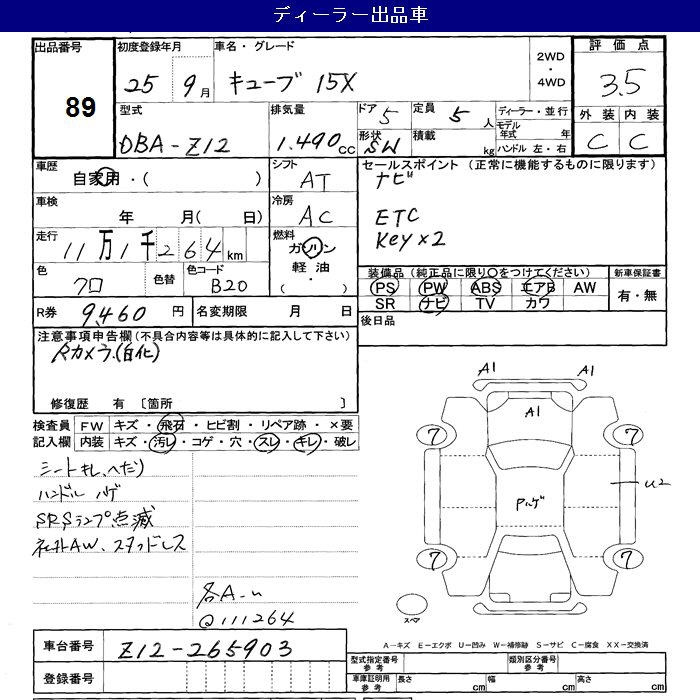 ディーラー出品車
出品番号 初度登録年月 車名・グレード 2WD ・ 4WD 評価点
89 25 9月 キューブ 15X 3.5
型式 排気量 ドア 5 定員 5人 ディーラー・並行 外装 内装
DBA-Z12 1.490cc 形状 SW 積載 kg モデル年式 年 ハンドル 左・右 C C
車歴 自家用・( ) シフト AT セールスポイント (正常に機能するものに限ります)
ナビ
車検 年 月( 日) 冷房 AC ETC
走行 11万1千264km 燃料 ガソリン 軽油 ( ・ ) Key×2
色 クロ 色替 色コード B20 装備品 (純正品に限り○をつけてください) 新車保証書
PS PW ABS エアB AW 有・無
SR ナビ TV カワ
R券 9,460円 名変期限 月 日 後日品
注意事項申告欄 (不具合内容等は具体的に記入して下さい)
Rカメラ.(白化)
修復歴 有 〔箇所 〕
検査員 FW キズ・飛石・ヒビ割・リペア跡・×要
記入欄 内装 キズ・汚レ・コゲ・穴・スレ・キレ・破レ
シートキレ、ヘたり
ハンドル ハゲ
SRSランプ点滅
社外AW、スタッドレス
各A-u
@111264
A1 A1
A1
7 7
U2
Pハゲ
7 7
スペア
A-キズ E-エクボ U-凹み W-補修跡 S-サビ C-腐食 XX-交換済
車台番号 Z12-265903
型式指定番号 参考 類別区分番号 参考
登録番号 車庫証明用 参考 長さ cm 幅 cm 高さ cm